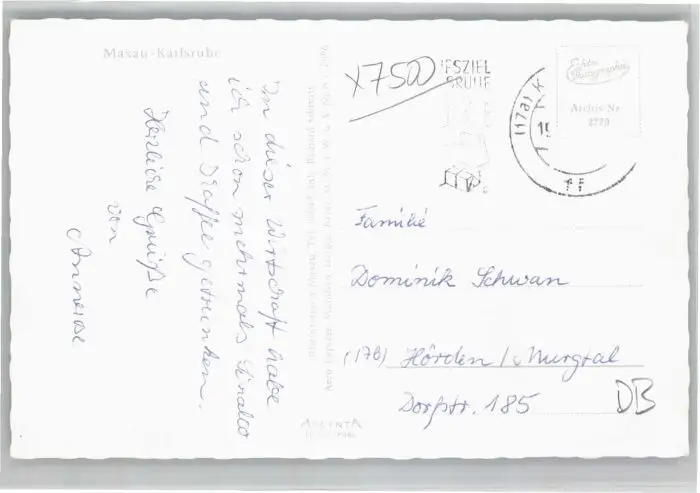 Maxau-Karlsruhe
In dieser Wirtschaft habe
ich schon mehrmals Sinalco
und Kaffee getrunken.
Herzliche Grüße
von
Annerose
x7500
ESZIEL
SRUHE
(17a)
Echte
Photographie
Archiv-Nr.
2770
Familie
Dominik Schwan
(17b) Hörden / Murgtal
Dorfstr. 185
DB